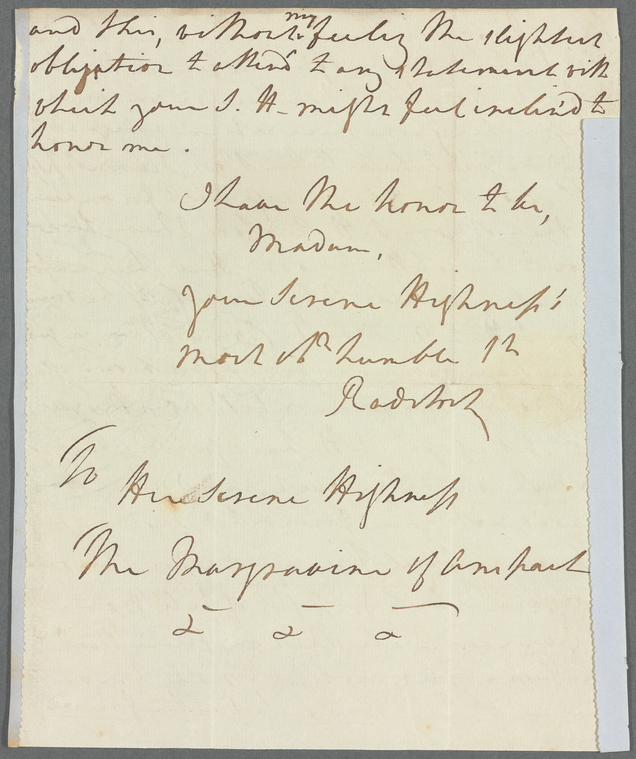 and this, without my feeling the slightest
obligation to attend to any statement with
which your S. H- might feel inclin'd to
honor me.
I have the honor to be,
Madam,
your Serene Highness's
most obt humble St
To
Her Serene Highness
The Margravine of Anspach
&c &c &c